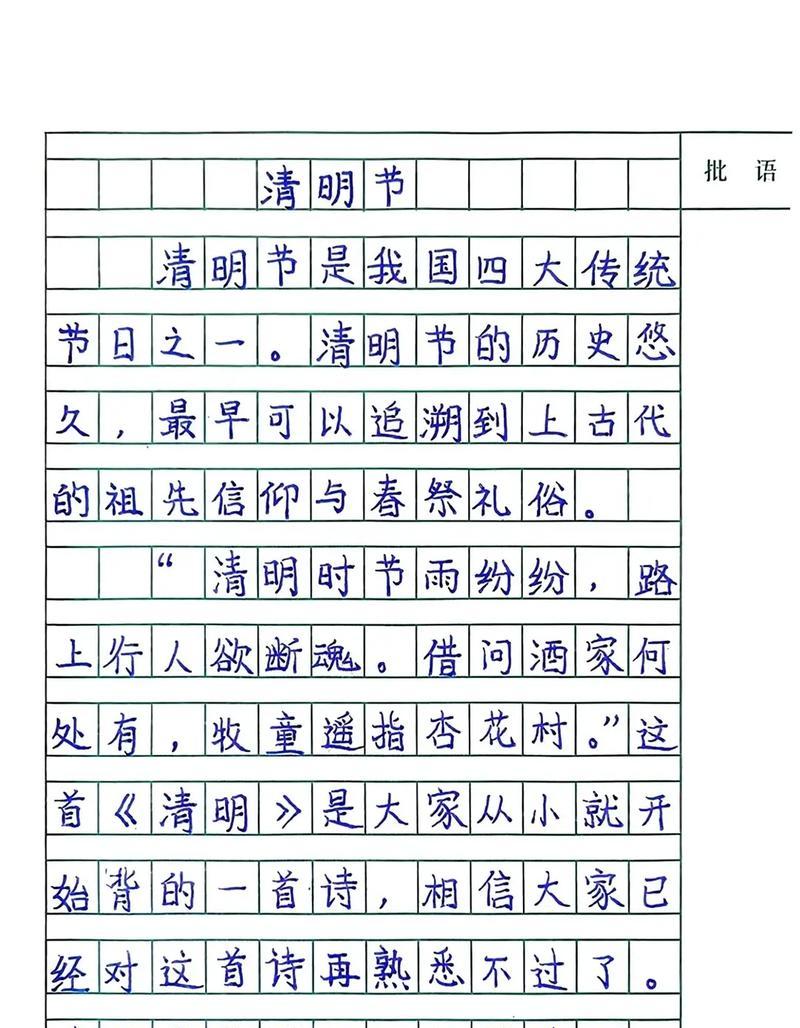 批 语
清明节
清明节是我国四大传统
节日之一。清明节的历史悠
久，最早可以追溯到上古代
的祖先信仰与春祭礼俗。
“清明时节雨纷纷，路
上行人欲断魂。借问酒家何
处有，牧童遥指杏花村。”这
首《清明》是大家从小就开
始背的一首诗，相信大家已
经对这首诗再熟悉不过了。